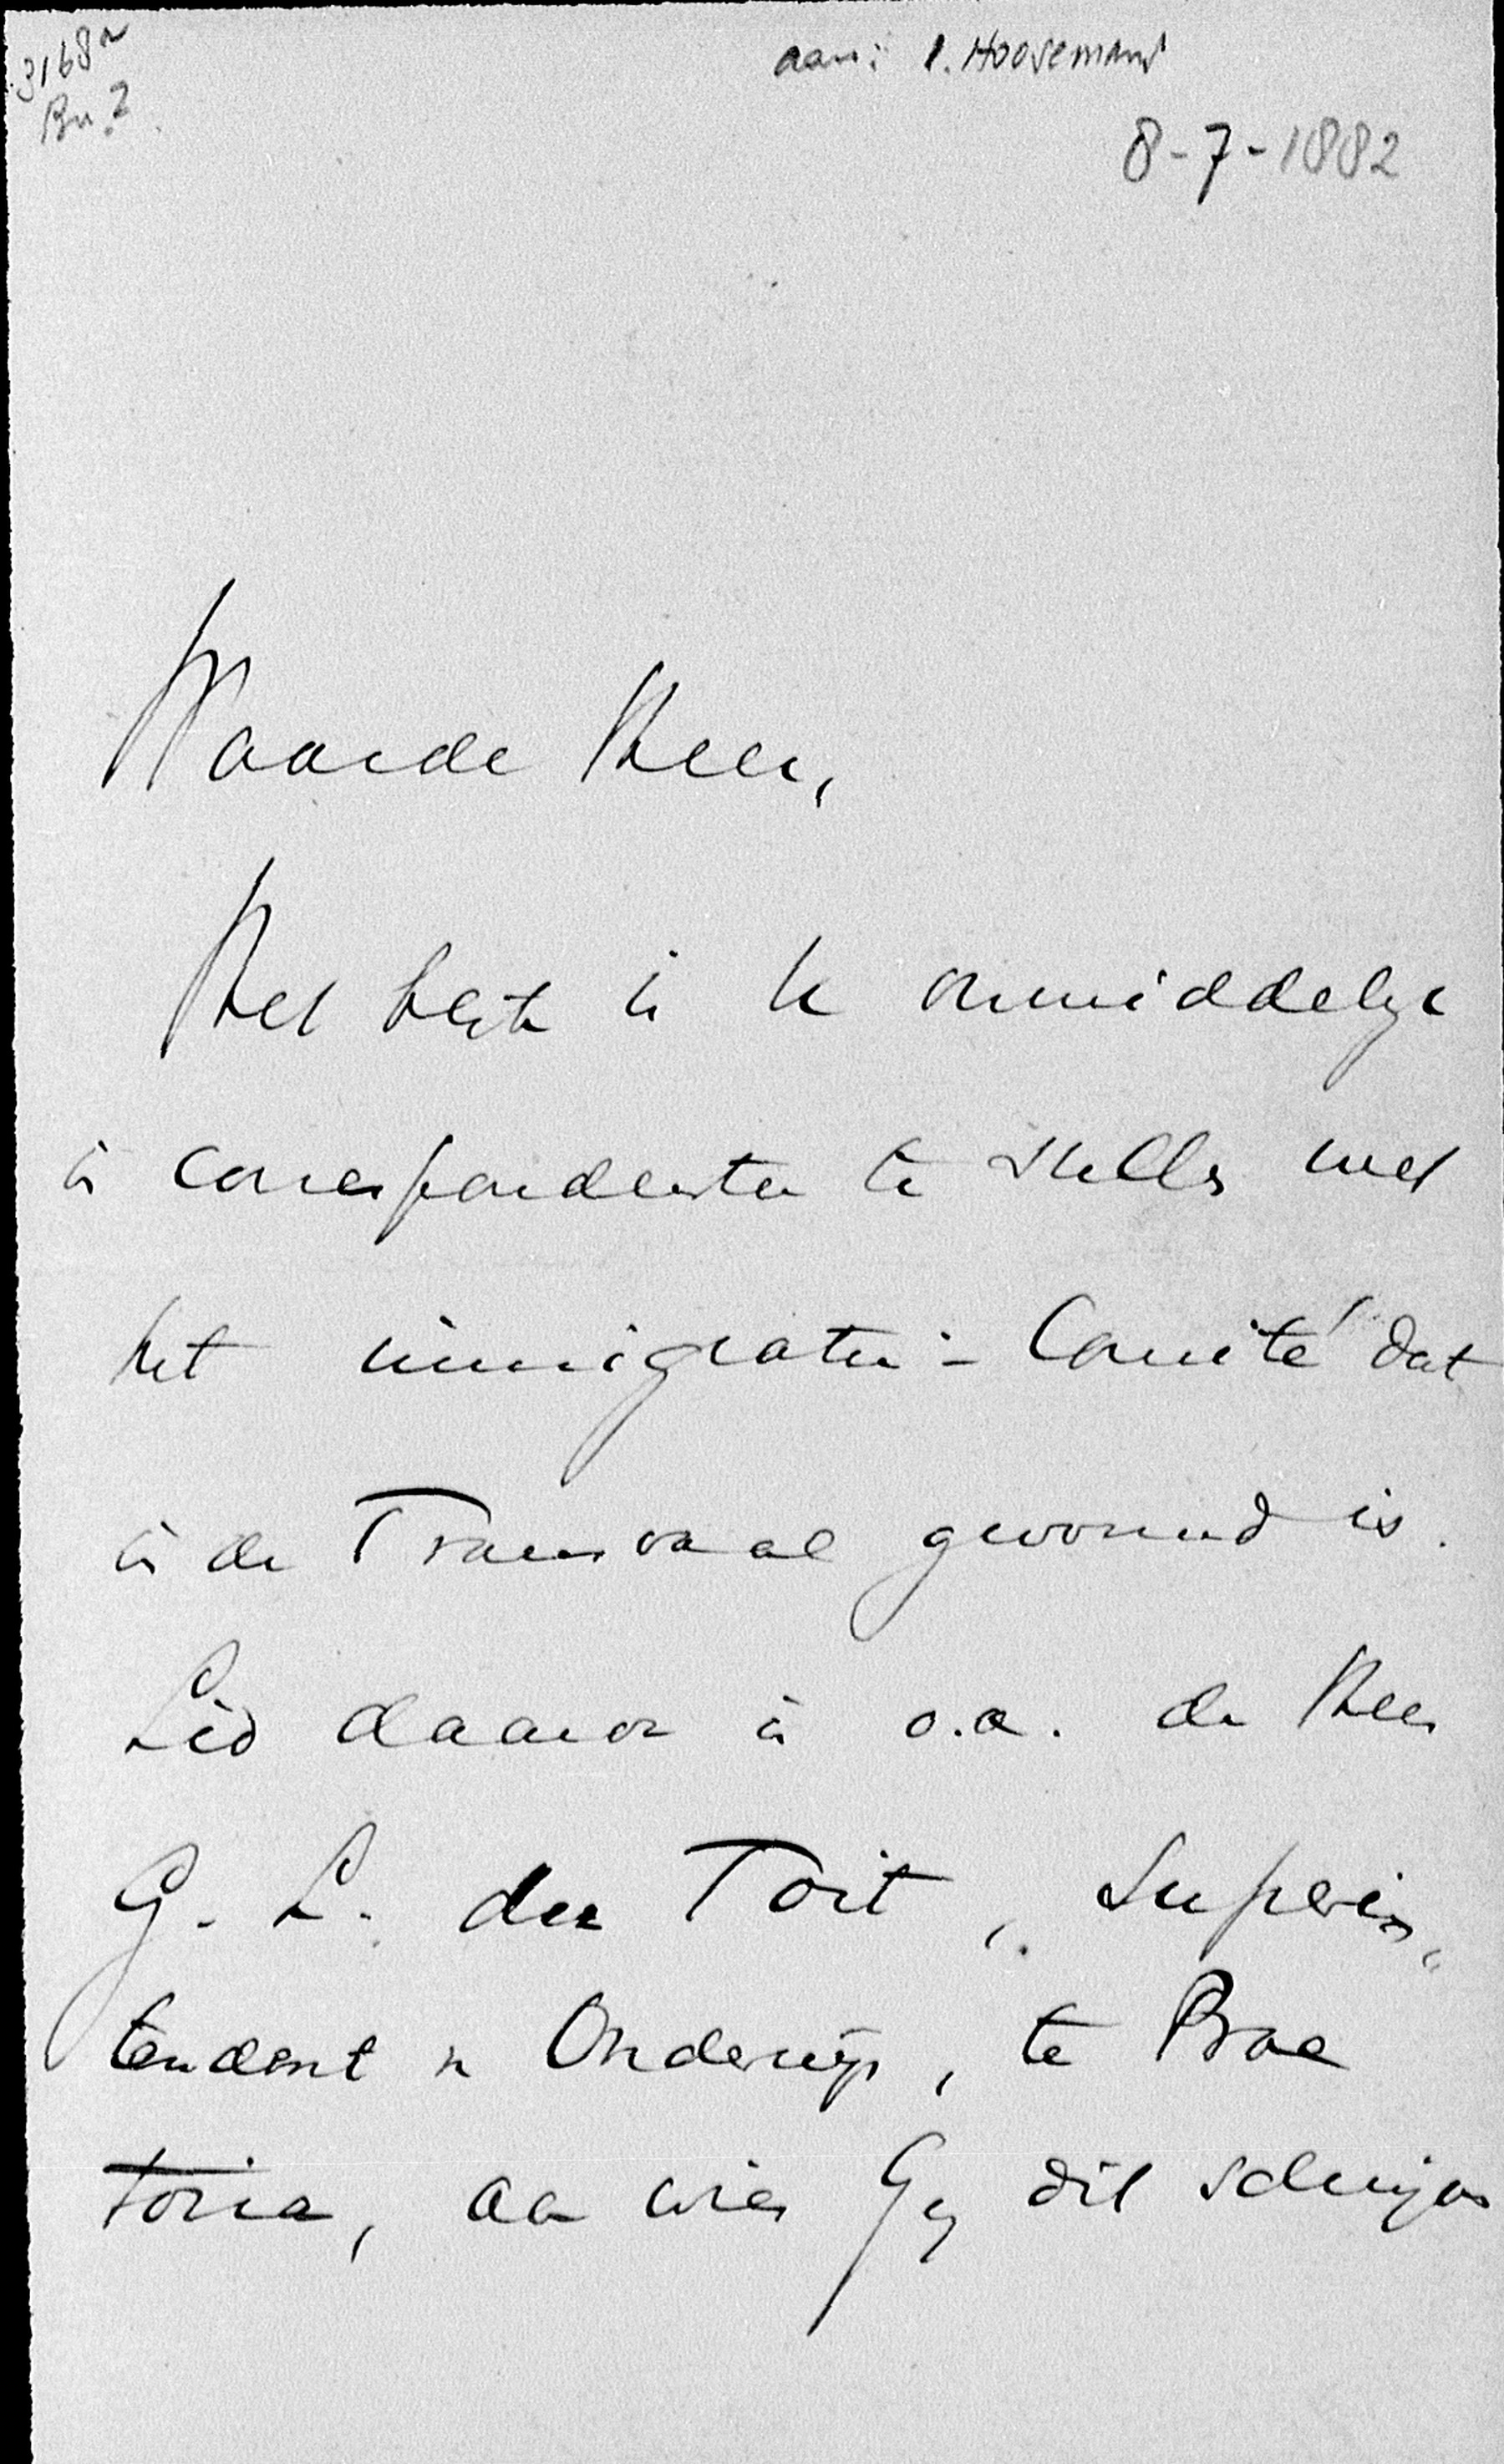 3168a
Br. 2
aan: I. Hoosemans
8-7-1882
Waarde Heer,
Het beste is U onmiddelyk
in correspondentie te stellen met
het immigratie-Comité dat
in de Transvaal gevormd is.
Lid daarvan is o.a. de Heer
G. L. du Toit, Superin„
tendent v Onderwijs, te Prae
toria, aan wien Gy dit schrijven